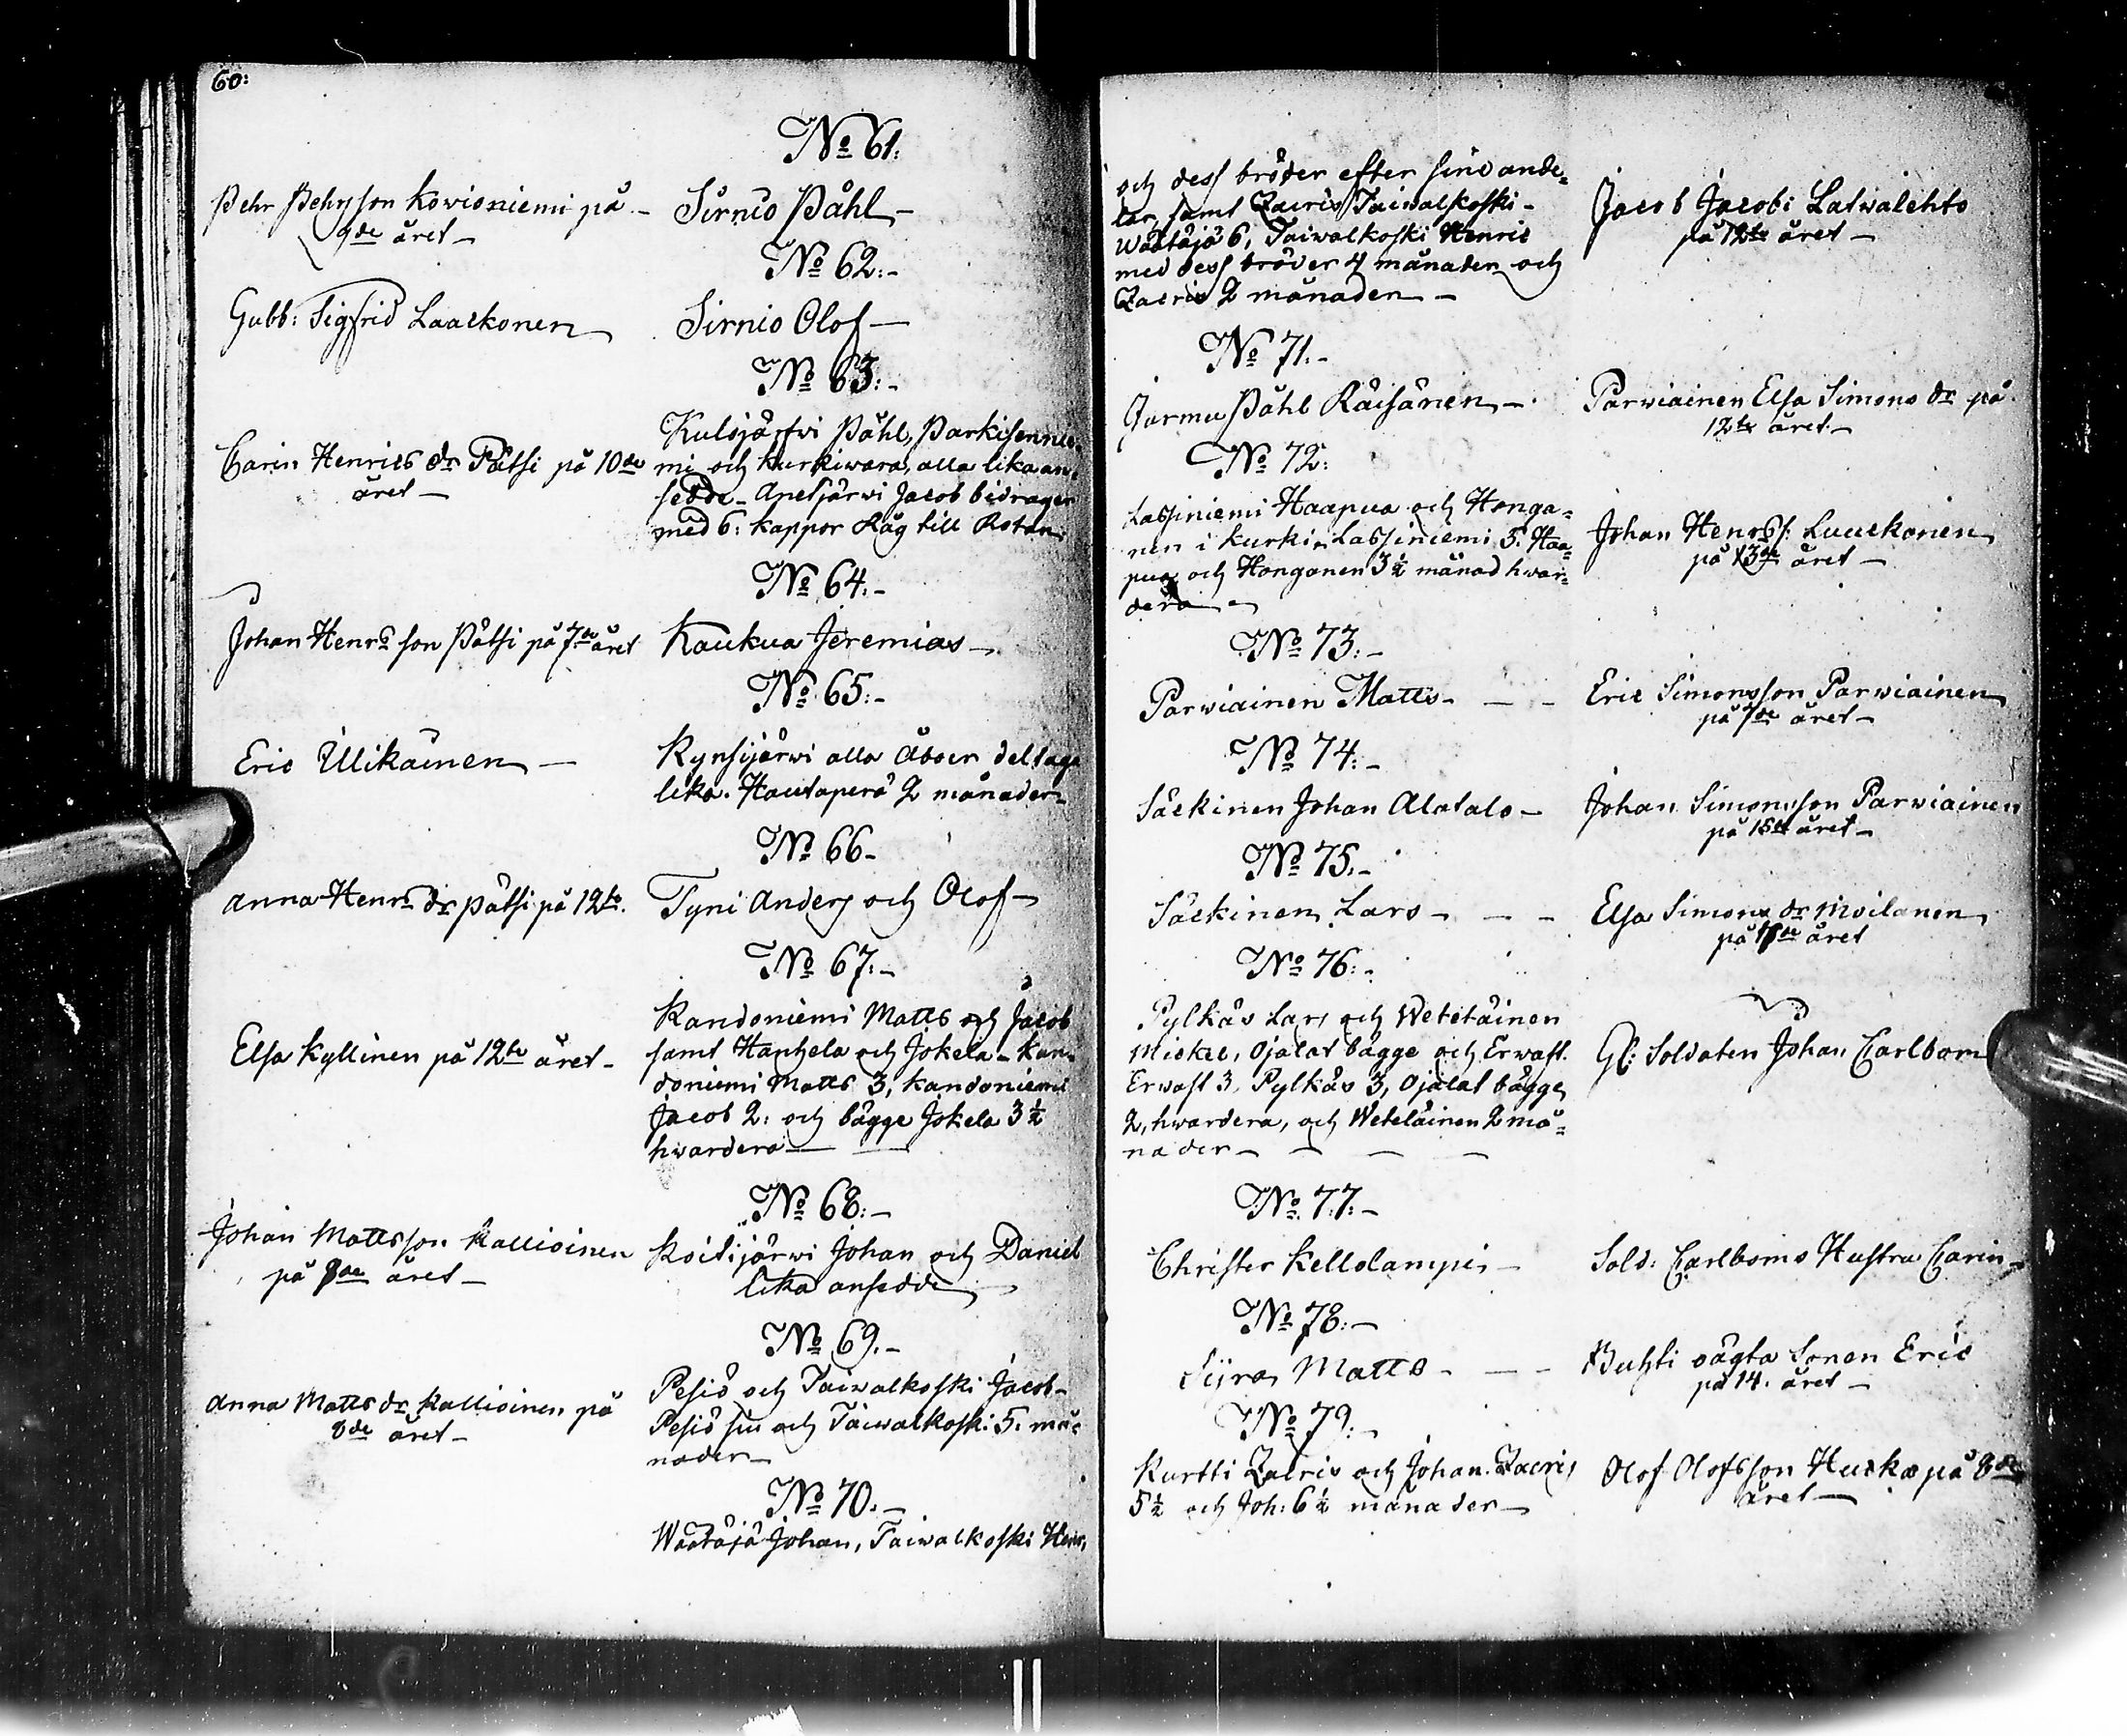 60:
No 61:
Pehr Pehrsson Kovioniemi på
9de året
Sirniö Påhl
No 62:
Gubb: Sigfrid Laackonen
Sirniö Olof
No 63:
Carin Henrics dr Pätsi på 10de
året
Kulsjärfvi Påhl, Parkisennie-
mi och Kurkiwara, alla lika an-
sedde - Apetjärwi Jacob bidrager
med 6: kappor Råg till Rotan.
No 64:
Johan Henrs son Pätsi på 7de året
Kaukua Jeremias
No 65:
Eric Ullikainen
Kynsijärwi alla Åboer deltaga
lika. Hautaperä 2 månader
No 66
Anna Henrs dr Pätsi på 12te.
Tyni Anders och Olof
No 67:
Elsa Kyllinen på 12te året
Kandoniemi Matts och Jacob
samt Hanhela och Jokela - Kan-
doniemi Matts 3, Kandoniemi
Jacob 2: och bägge Jokela 3½
hwardera
No 68:
Johan Mattsson Kallioinen
på 8de året
Koitijärwi Johan och Daniel
lika ansedde
No 69.
Anna Matts dr Kallioinen på
8de året
Pesiö och Taiwalkoski Jacob
Pesiö siu och Taiwalkoski 5. må-
nader
No 70.
Wäätäjä Johan, Taiwalkoski Henr,
och dess bröder efter sine ande-
lar, samt Zacris Taiwalkoski
Wäätäjä 6, Taiwalkoski Henric
med dess bröder 4 månader och
Zacris 2 månader
Jacob Jacobs Latwalehto
på 12te året
No 71.
Jurmu Påhl Räisänen
Parwiainen Elsa Simons dr på
12te året
No 72:
Labsiniemi Haapua och Honga-
nen i Kurki, Labsiniemi 5. Haa-
pua och Honganen 3½ månad hwar-
dera
Johan Henrs s: Luuckonen
på 13de året
No 73:
Parwiainen Matts
Eric Simonsson Parwiainen
på 7de året
No 74:
Säckinen Johan Alatalo
Johan Simonsson Parwiainen
på 15de året
No 75.
Säckinen Lars
Elsa Simons dr Moilanen
på de året
No 76:
Pylkäs Lars och Weteläinen
Mickel, Ojalat bägge och Erwast.
Erwast 3, Pylkäs 3, Ojalat bägge
2, hwardera, och Weteläinen 2 må-
nader
Gl: Soldaten Johan Carlbom
No 77:
Christer Kellolampi
Sold: Carlboms Hustru Carin
No 78:
Siira Matts
Buhti oägta Sonen Eric
på 14. året
No 79:
Kurtti Zacris och Johan. Zacris
5½ och Joh: 6½ månader
Olof Olofsson Huska på 8de
året